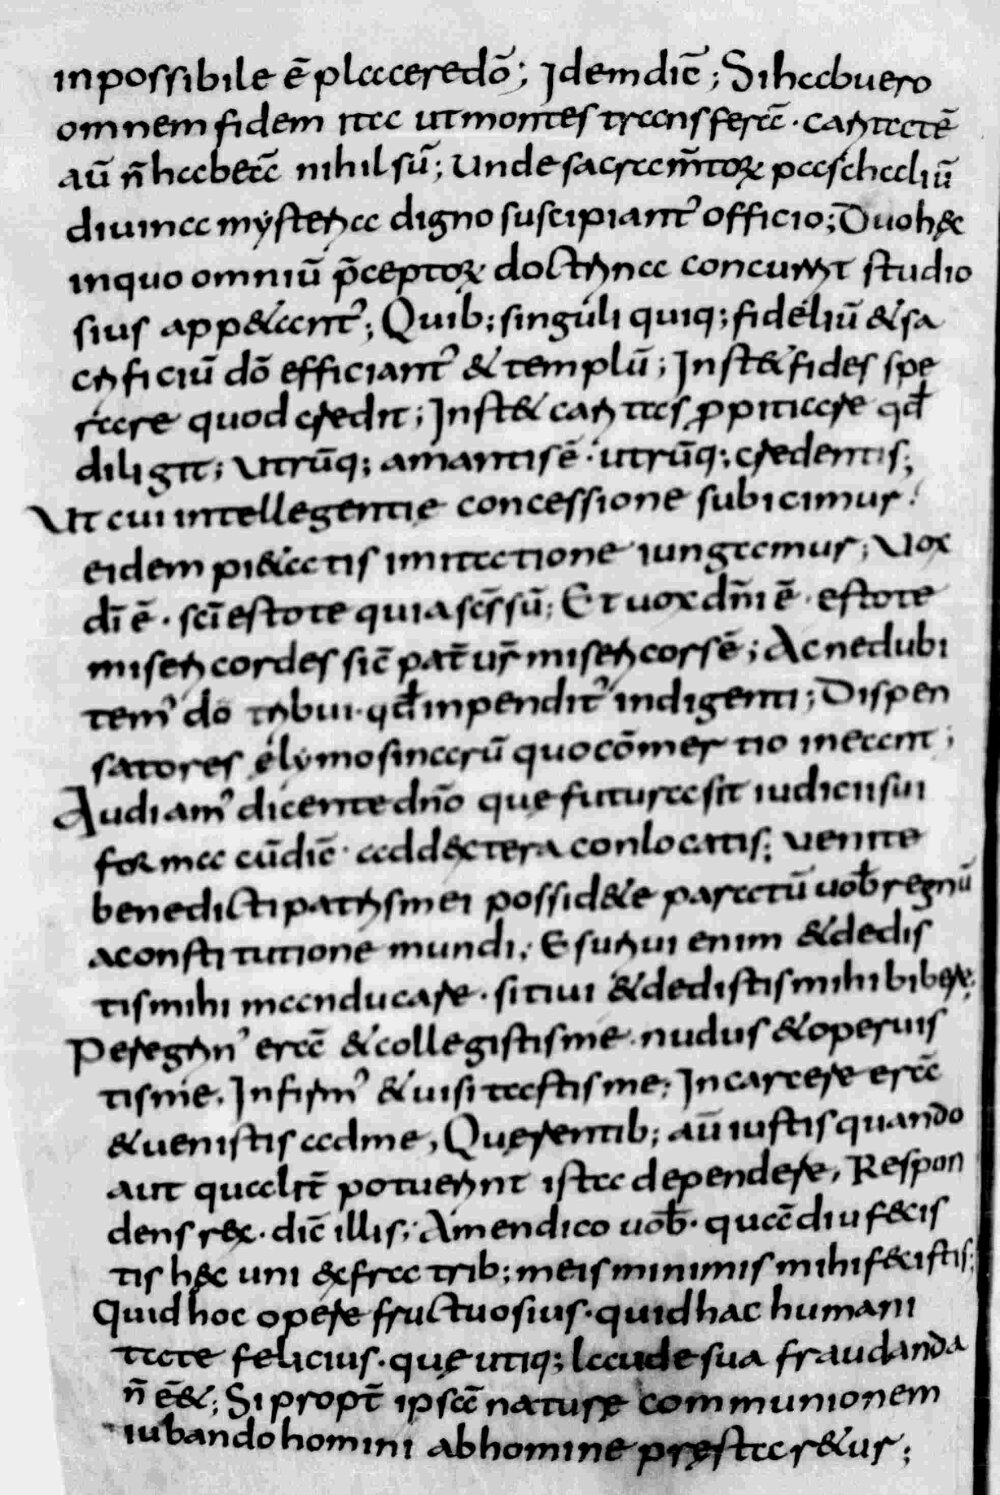 inpossibile ē placere dō; Idem dic̄; Si habuero
omnem fidem ita ut montes transferā· caritatē
aū n̄ habeā nihil sū; Unde sacram̄torꝝ paschaliū
diuina mysteria digno suscipiant᾽ officio; Duo hęc
in quo omniū p̄ceptorꝝ doctrina concurrit studio
sius appetant᾽; Quib; singuli quiq; fideliū & sa
crificiū dō efficiant᾽ & templū; Inst& fides spe
rare quod credit; Inst& caritas ꝓpitiare qđ
diligit; Utrūq; amantis ē· utrūq; credentis;
Ut cui intellegentię concessione subicimur·
eidem pi&atis imitatione iungamur; Vox
dī ē· sc̄i estote quia sc̄s sū; Et uox dn̄i ē· estote
misericordes sic̄ pat̄ ur̄ misericors ē; Ac ne dubi
tem᾽ dō tribui· qđ inpendit᾽ indigenti; Dispen
satores elymosinarū quocōmertio ineant;
Audiam᾽ dicentē dn̄o quę futura sit iudicii sui
forma cū dic̄· ad dęxtera conlocatis; Venite
benedicti patris mei possid&e paratū uob̄ regnū
a constitutione mundi; Esuriui enim & dedis
tis mihi manducare· sitiui & dedistis mihi bibere;
Peregrin᾽ erā & collegistis me· nudus & operuis
tis me; Infirm᾽ & uisitastis me; In carcere erā
& uenistis ad me; Quęrentib; aū iustis quando
aut qualit̄ potuerint ista dependere, Respon
dens rex· dic̄ illis; Amen dico uob̄· quādiu fecis
tis hęc uni ex fratrib; meis minimis mihi fecistis;
Quid hoc opere fructuosius· quid hac humani
tate felicius· quę utiq; laude sua fraudanda
n̄ ē&; Si propt̄ ipsā naturę communionem
iubando homini ab homine pręstar&ur;